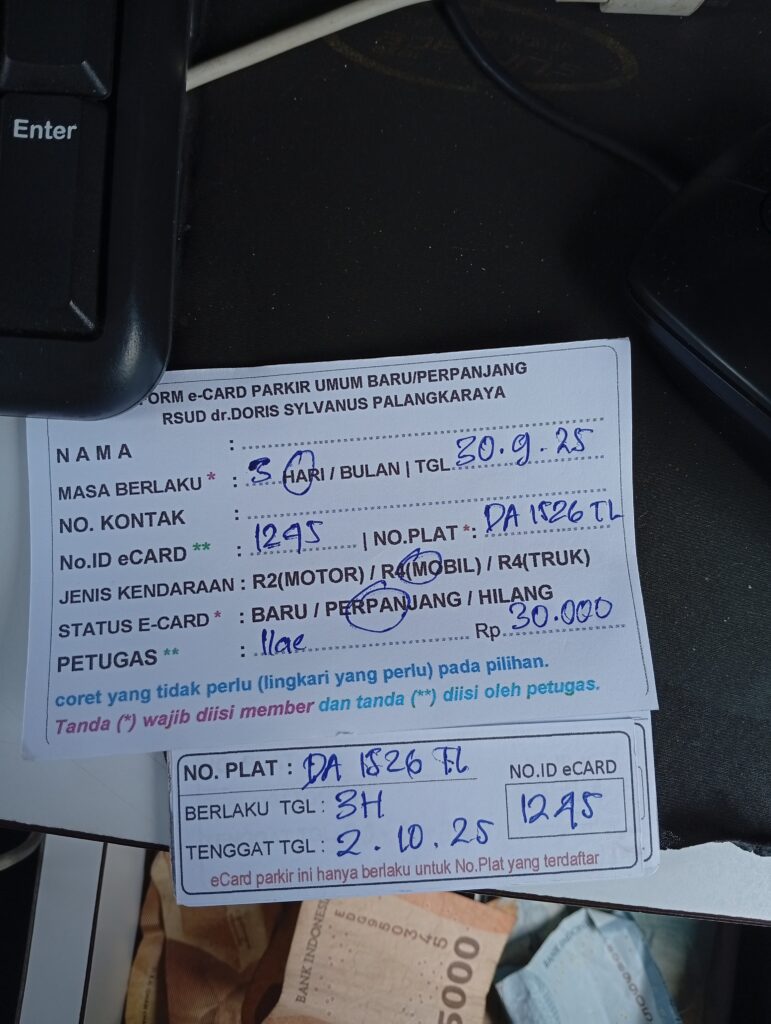 Enter
FORM e-CARD PARKIR UMUM BARU/PERPANJANG
RSUD dr.DORIS SYLVANUS PALANGKARAYA
NAMA :
MASA BERLAKU * : 3 HARI / BULAN | TGL 30.9.25
NO. KONTAK :
No.ID eCARD ** : 1295 | NO.PLAT *: DA 1526 TL
JENIS KENDARAAN : R2(MOTOR) / R4(MOBIL) / R4(TRUK)
STATUS E-CARD * : BARU / PERPANJANG / HILANG
PETUGAS ** : Rp 30.000
coret yang tidak perlu (lingkari yang perlu) pada pilihan.
Tanda (*) wajib diisi member dan tanda (**) diisi oleh petugas.
NO. PLAT : DA 1526 TL
NO.ID eCARD
1295
BERLAKU TGL : 3H
TENGGAT TGL : 2.10.25
eCard parkir ini hanya berlaku untuk No.Plat yang terdaftar
BANK INDONESIA
5000